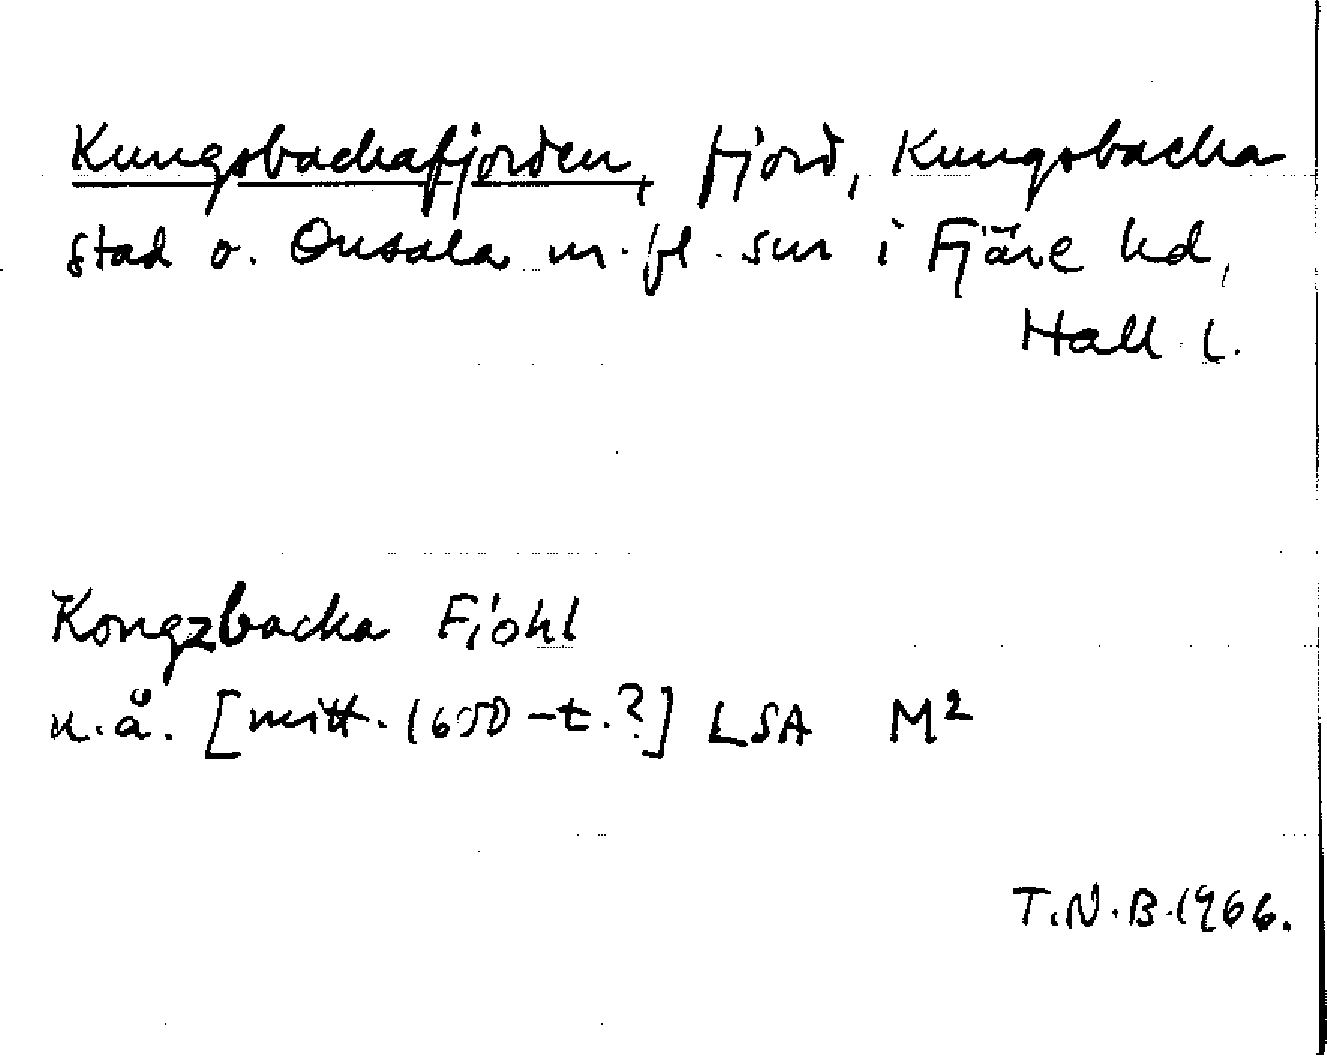 Kungsbackafjorden, fjord, Kungsbacka
stad o. Onsala m. fl. snr i Fjäre hd,
Hall. l.
Kongzbacka Fiohl
u.å. [mitt. 1650-t.?] LSA M²
T.N.B. 1966.